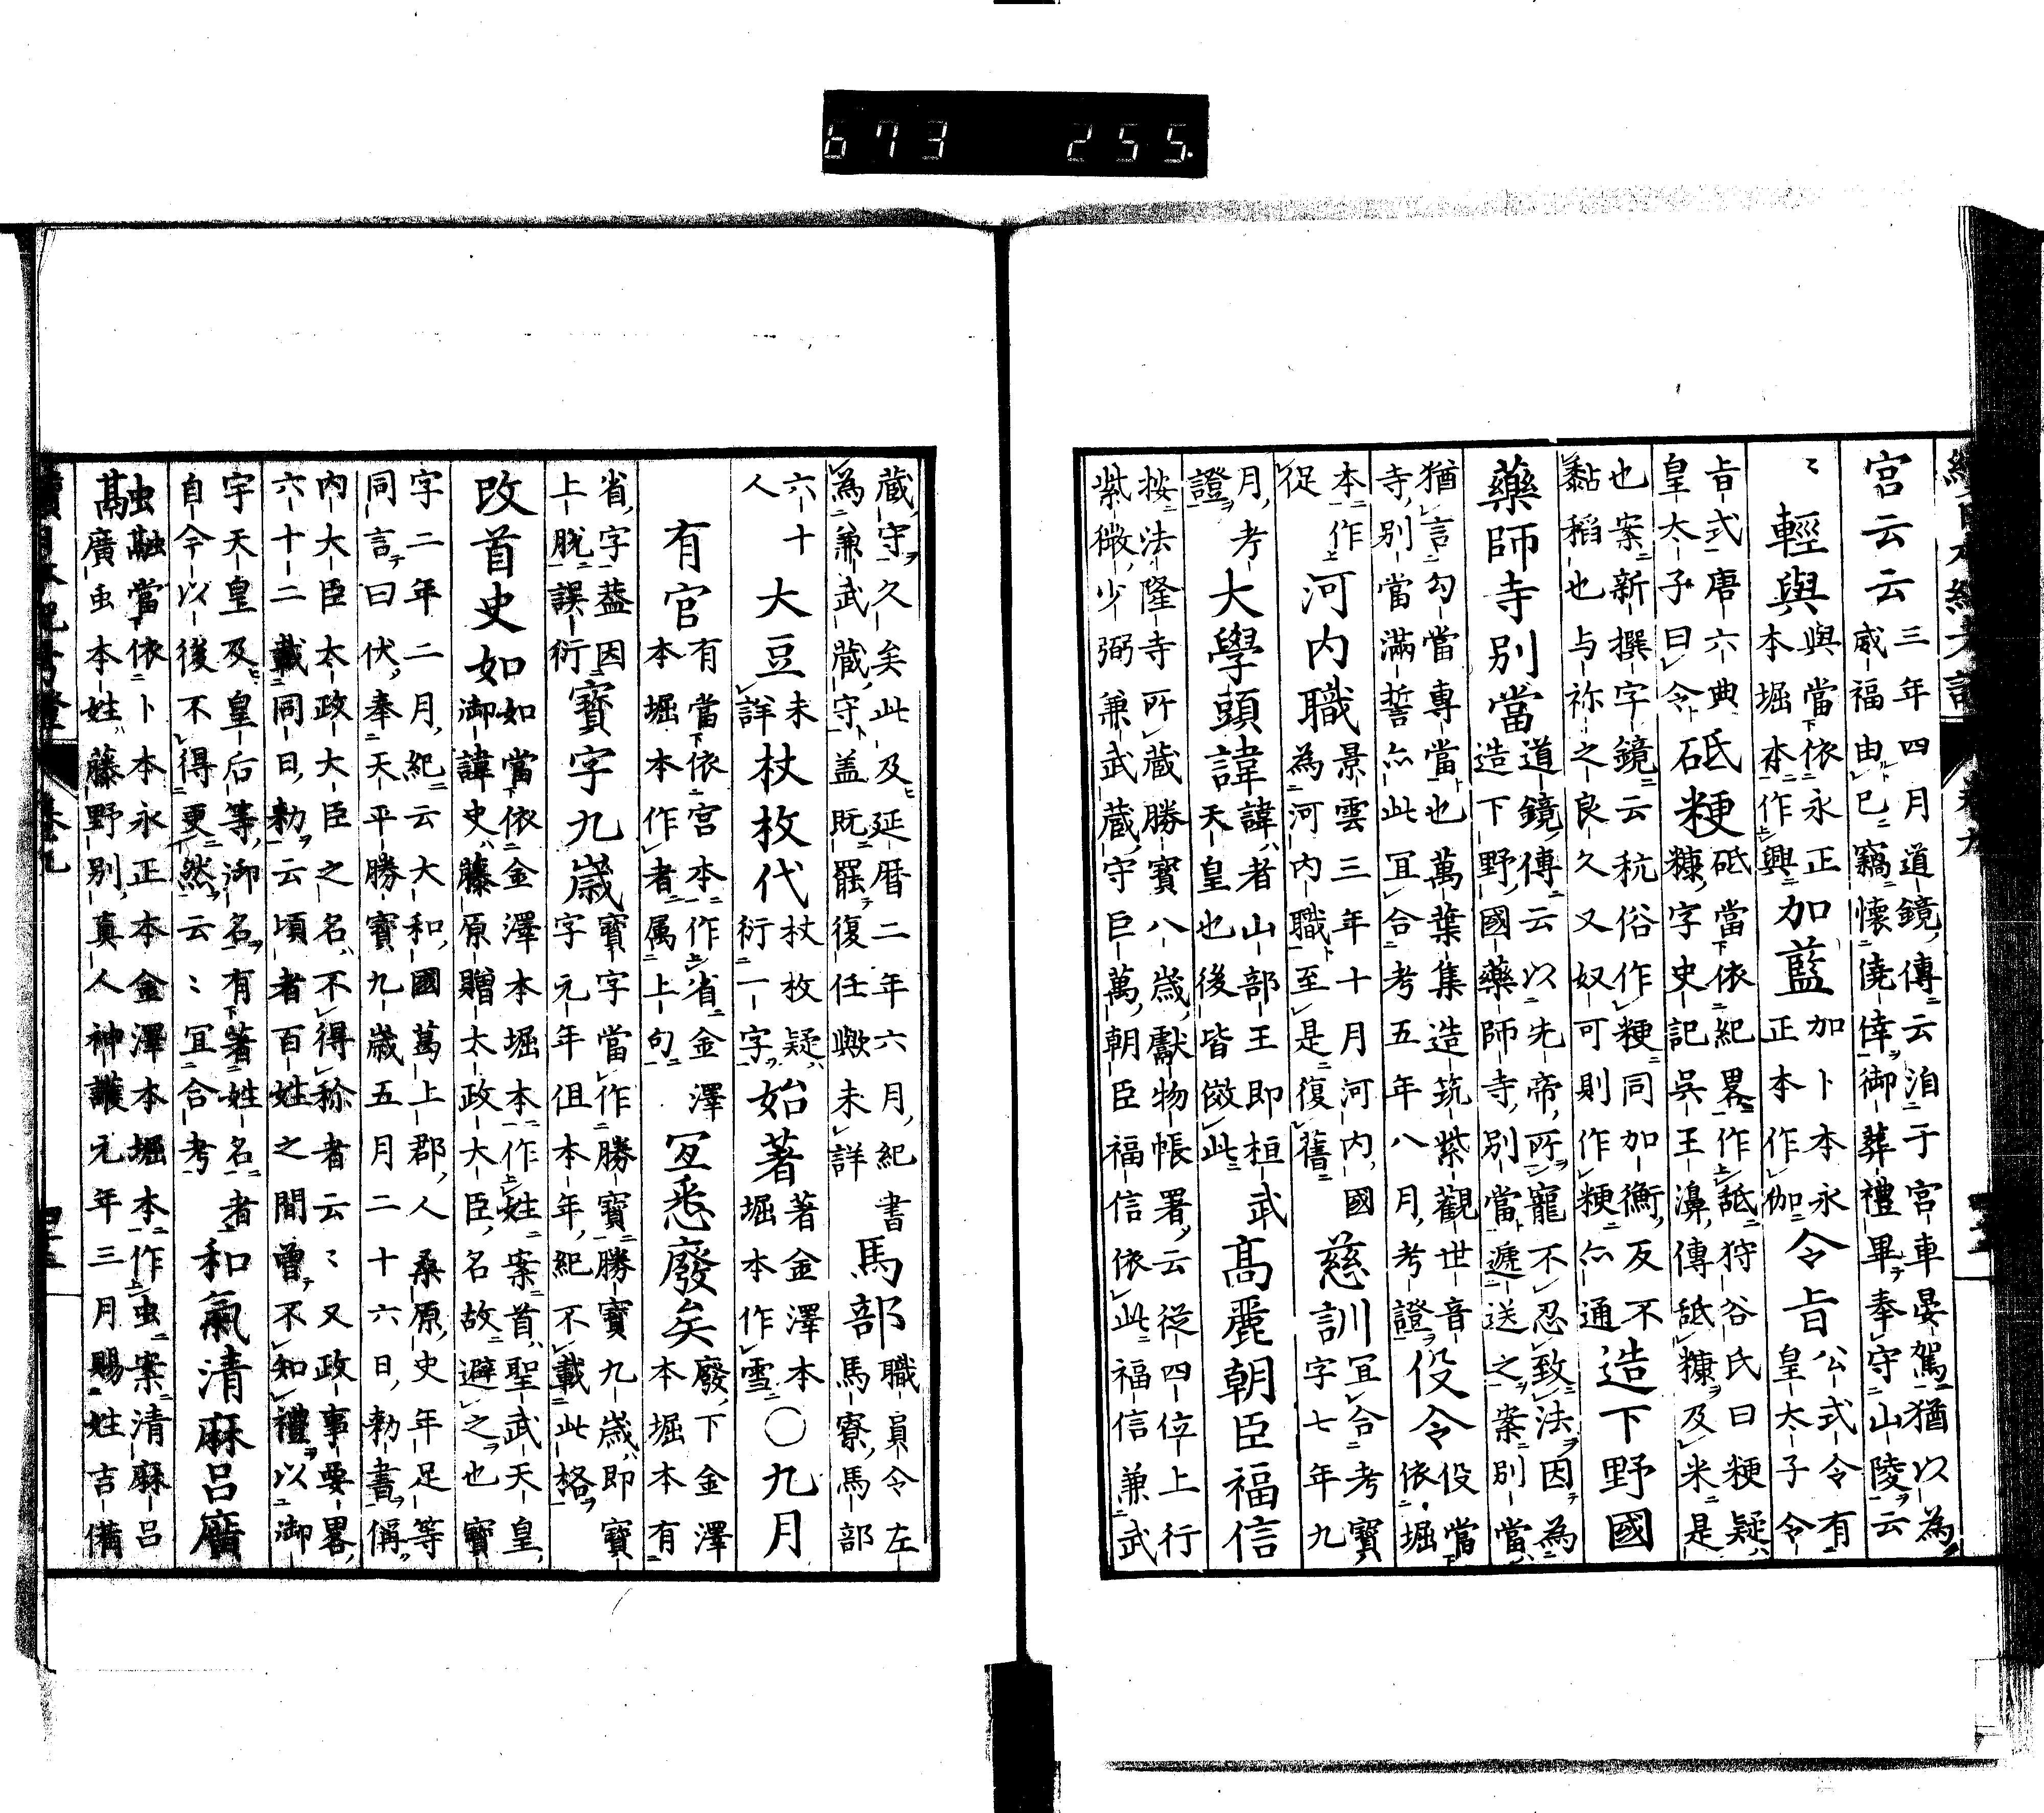 宮云云三年四月道鏡傳云洎于宮車晏駕猶以為
威福由已竊懷僥倖御葬禮畢奉守山陵云
〻輕與與當依永正
本堀本作興
加藍加卜本永
正本作伽
令㫖公式令有
皇太子令
㫖式唐六典
皇太子曰令
砥粳砥當依紀畧作䑛狩谷氏曰粳疑
糠字史記吳王濞傳䑛糠及米是
也案新撰字鏡云秔俗作粳同加衡反不
黏稻也与祢之良久又奴可則作粳亦通
造下野國
藥師寺別當道鏡傳云以先帝所寵不忍致法因為
造下野國藥師寺別當遞送之案別當
猶言勾當專當也萬葉集造筑紫觀世音
寺別當滿誓亦此宜合考五年八月考證
役令役當
依堀
本作
從
河内職景雲三年十月河内國
為河内職至是復舊
慈訓宜合考寶
字七年九
月考
證
大學頭諱諱者山部王即桓武
天皇也後皆倣此
高麗朝臣福信
按法隆寺所藏勝寶八歳獻物帳署云從四位上行
紫微少弼兼武藏守巨萬朝臣福信依此福信兼武
藏守久矣此及延暦二年六月紀書
為兼武藏守盖既罷復任歟未詳
馬部職員令左
馬寮馬部
六十
人
大豆未
詳
杖枚代杖枚疑
衍一字
始著著金澤本
堀本作雪
〇九月
有官有當依宮本作省金澤
本堀本作者属上句
互悉廢矣廢下金澤
本堀本有
省字葢因
上脱誤衍
寶字九歳寶字當作勝寶勝寶九歳即寶
字元年但本年紀不載此格
改首史如如當依金澤本堀本作姓案首聖武天皇
御諱史藤原贈太政大臣名故避之也寶
字二年二月紀云大和國葛上郡人桑原史年足等
同言曰伏奉天平勝寶九歳五月二十六日勅書偁
内大臣太政大臣之名不得稱者云〻又政事要畧
六十二載同日勅云頃者百姓之間曾不知禮以御
宇天皇及皇后等御名有著姓名者
自今以後不得更然云〻宜合考
和氣清麻呂廣
融融當依卜本永正本金澤本堀本作虫案清麻呂
廣虫本姓藤野別真人神護元年三月賜姓吉備
673 255